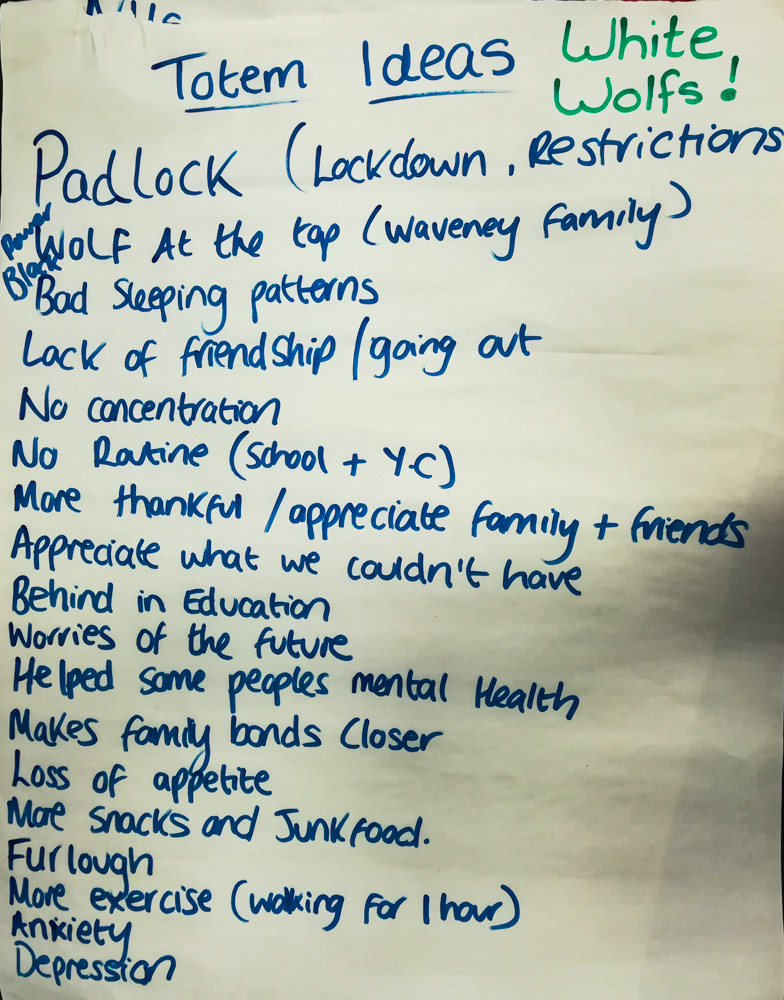 Totem Ideas
White
Wolfs!
Padlock (Lockdown, Restrictions
Power
Black
Wolf At the top (Waveney family)
Bad Sleeping patterns
Lack of friendship / going out
No concentration
No Routine (School + Y.C)
More thankful / appreciate family + friends
Appreciate what we couldn't have
Behind in Education
Worries of the future
Helped some peoples mental Health
Makes family bonds Closer
Loss of appetite
More snacks and Junkfood.
Furlough
More exercise (walking for 1 hour)
Anxiety
Depression